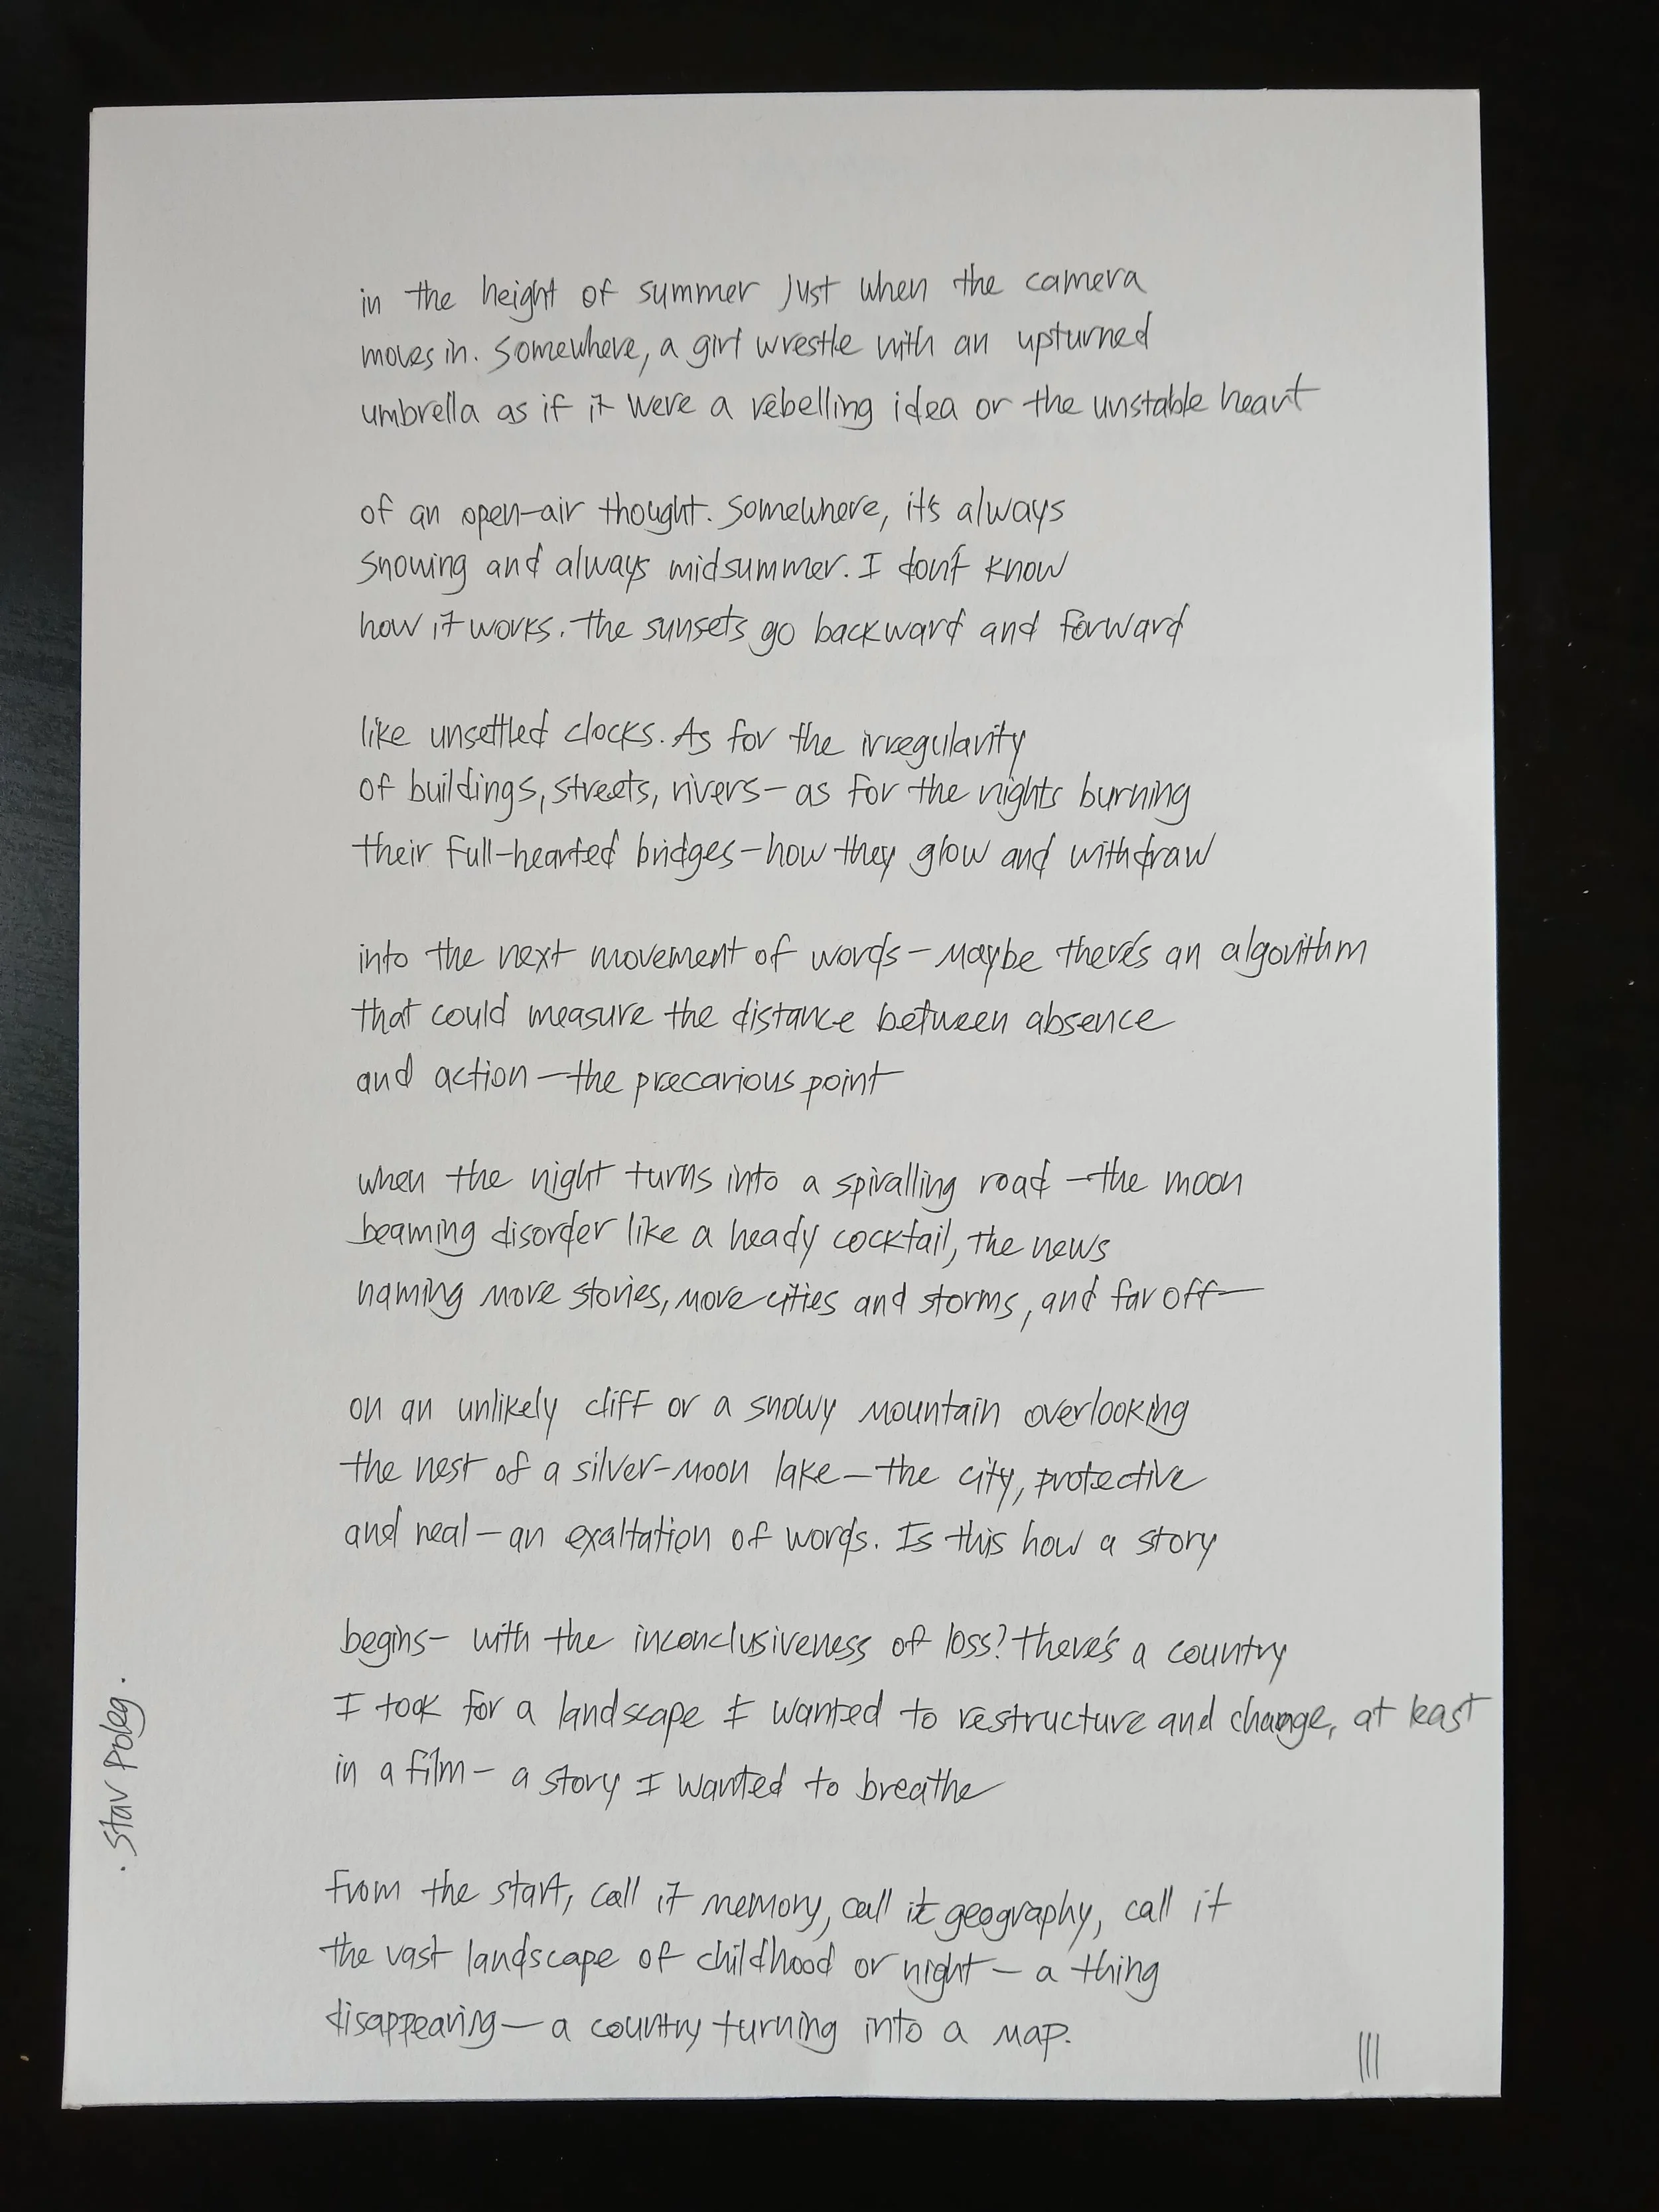 in the height of summer just when the camera
moves in. Somewhere, a girl wrestle with an upturned
umbrella as if it were a rebelling idea or the unstable heart
of an open-air thought. Somewhere, it's always
snowing and always midsummer. I don't know
how it works. The sunsets go backward and forward
like unsettled clocks. As for the irregularity
of buildings, streets, rivers—as for the nights burning
their full-hearted bridges—how they glow and withdraw
into the next movement of words—maybe there's an algorithm
that could measure the distance between absence
and action—the precarious point
when the night turns into a spiralling road—the moon
beaming disorder like a heady cocktail, the news
naming more stories, more cities and storms, and far off—
on an unlikely cliff or a snowy mountain overlooking
the nest of a silver-moon lake—the city, protective
and real—an exaltation of words. Is this how a story
begins—with the inconclusiveness of loss? There's a country
I took for a landscape I wanted to restructure and change, at least
in a film—a story I wanted to breathe
from the start, call it memory, call it geography, call it
the vast landscape of childhood or night—a thing
disappearing—a country turning into a map.
. Stav Poleg .
|||